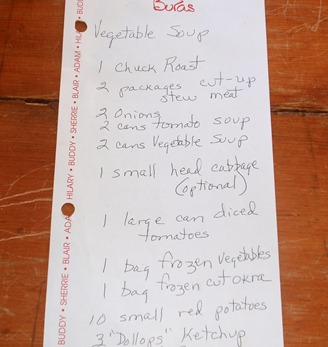 Buras
Vegetable Soup
1 Chuck Roast
2 packages cut-up
stew meat
2 Onions
2 cans tomato soup
2 cans Vegetable Soup
1 small head cabbage
(optional)
1 large can diced
tomatoes
1 bag frozen Vegetables
1 bag frozen cut okra
10 small red potatoes
3 "Dollops" Ketchup
BUDDY • SHERRIE • BLAIR • ADAM • HILARY • BUDDY • SHERRIE • BLAIR • ADAM • HILA